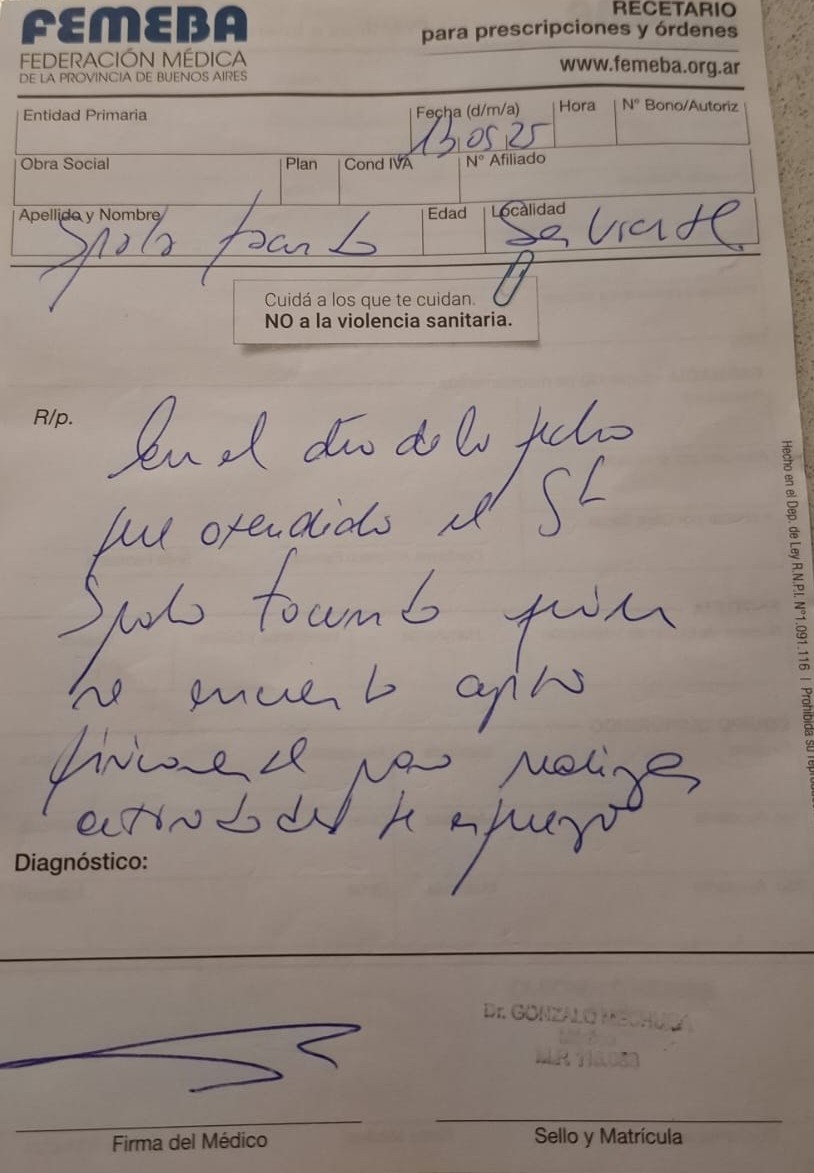 FEMEBA
FEDERACIÓN MÉDICA
DE LA PROVINCIA DE BUENOS AIRES
RECETARIO
para prescripciones y órdenes
www.femeba.org.ar
Entidad Primaria
Fecha (d/m/a)
13 05 25
Hora
N° Bono/Autoriz
Obra Social
Plan
Cond IVA
N° Afiliado
Apellido y Nombre
Edad
Localidad
Cuidá a los que te cuidan.
NO a la violencia sanitaria.
R/p.
En el día de la fecha
fue atendido el Sr
quien
se encuentra apto
físicamente para realizar
actividades de esfuerzo
Diagnóstico:
Firma del Médico
Dr. GONZALO
M.P.
Sello y Matrícula
Hecho en el Dep. de Ley R.N.P.I. N°1.091.116 | Prohibida su